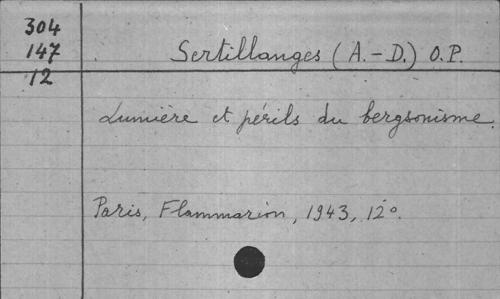 304
147 Sertillanges (A.-D.) O.P.
12
Lumière et périls du bergsonisme.
Paris, Flammarion, 1943, 12º.